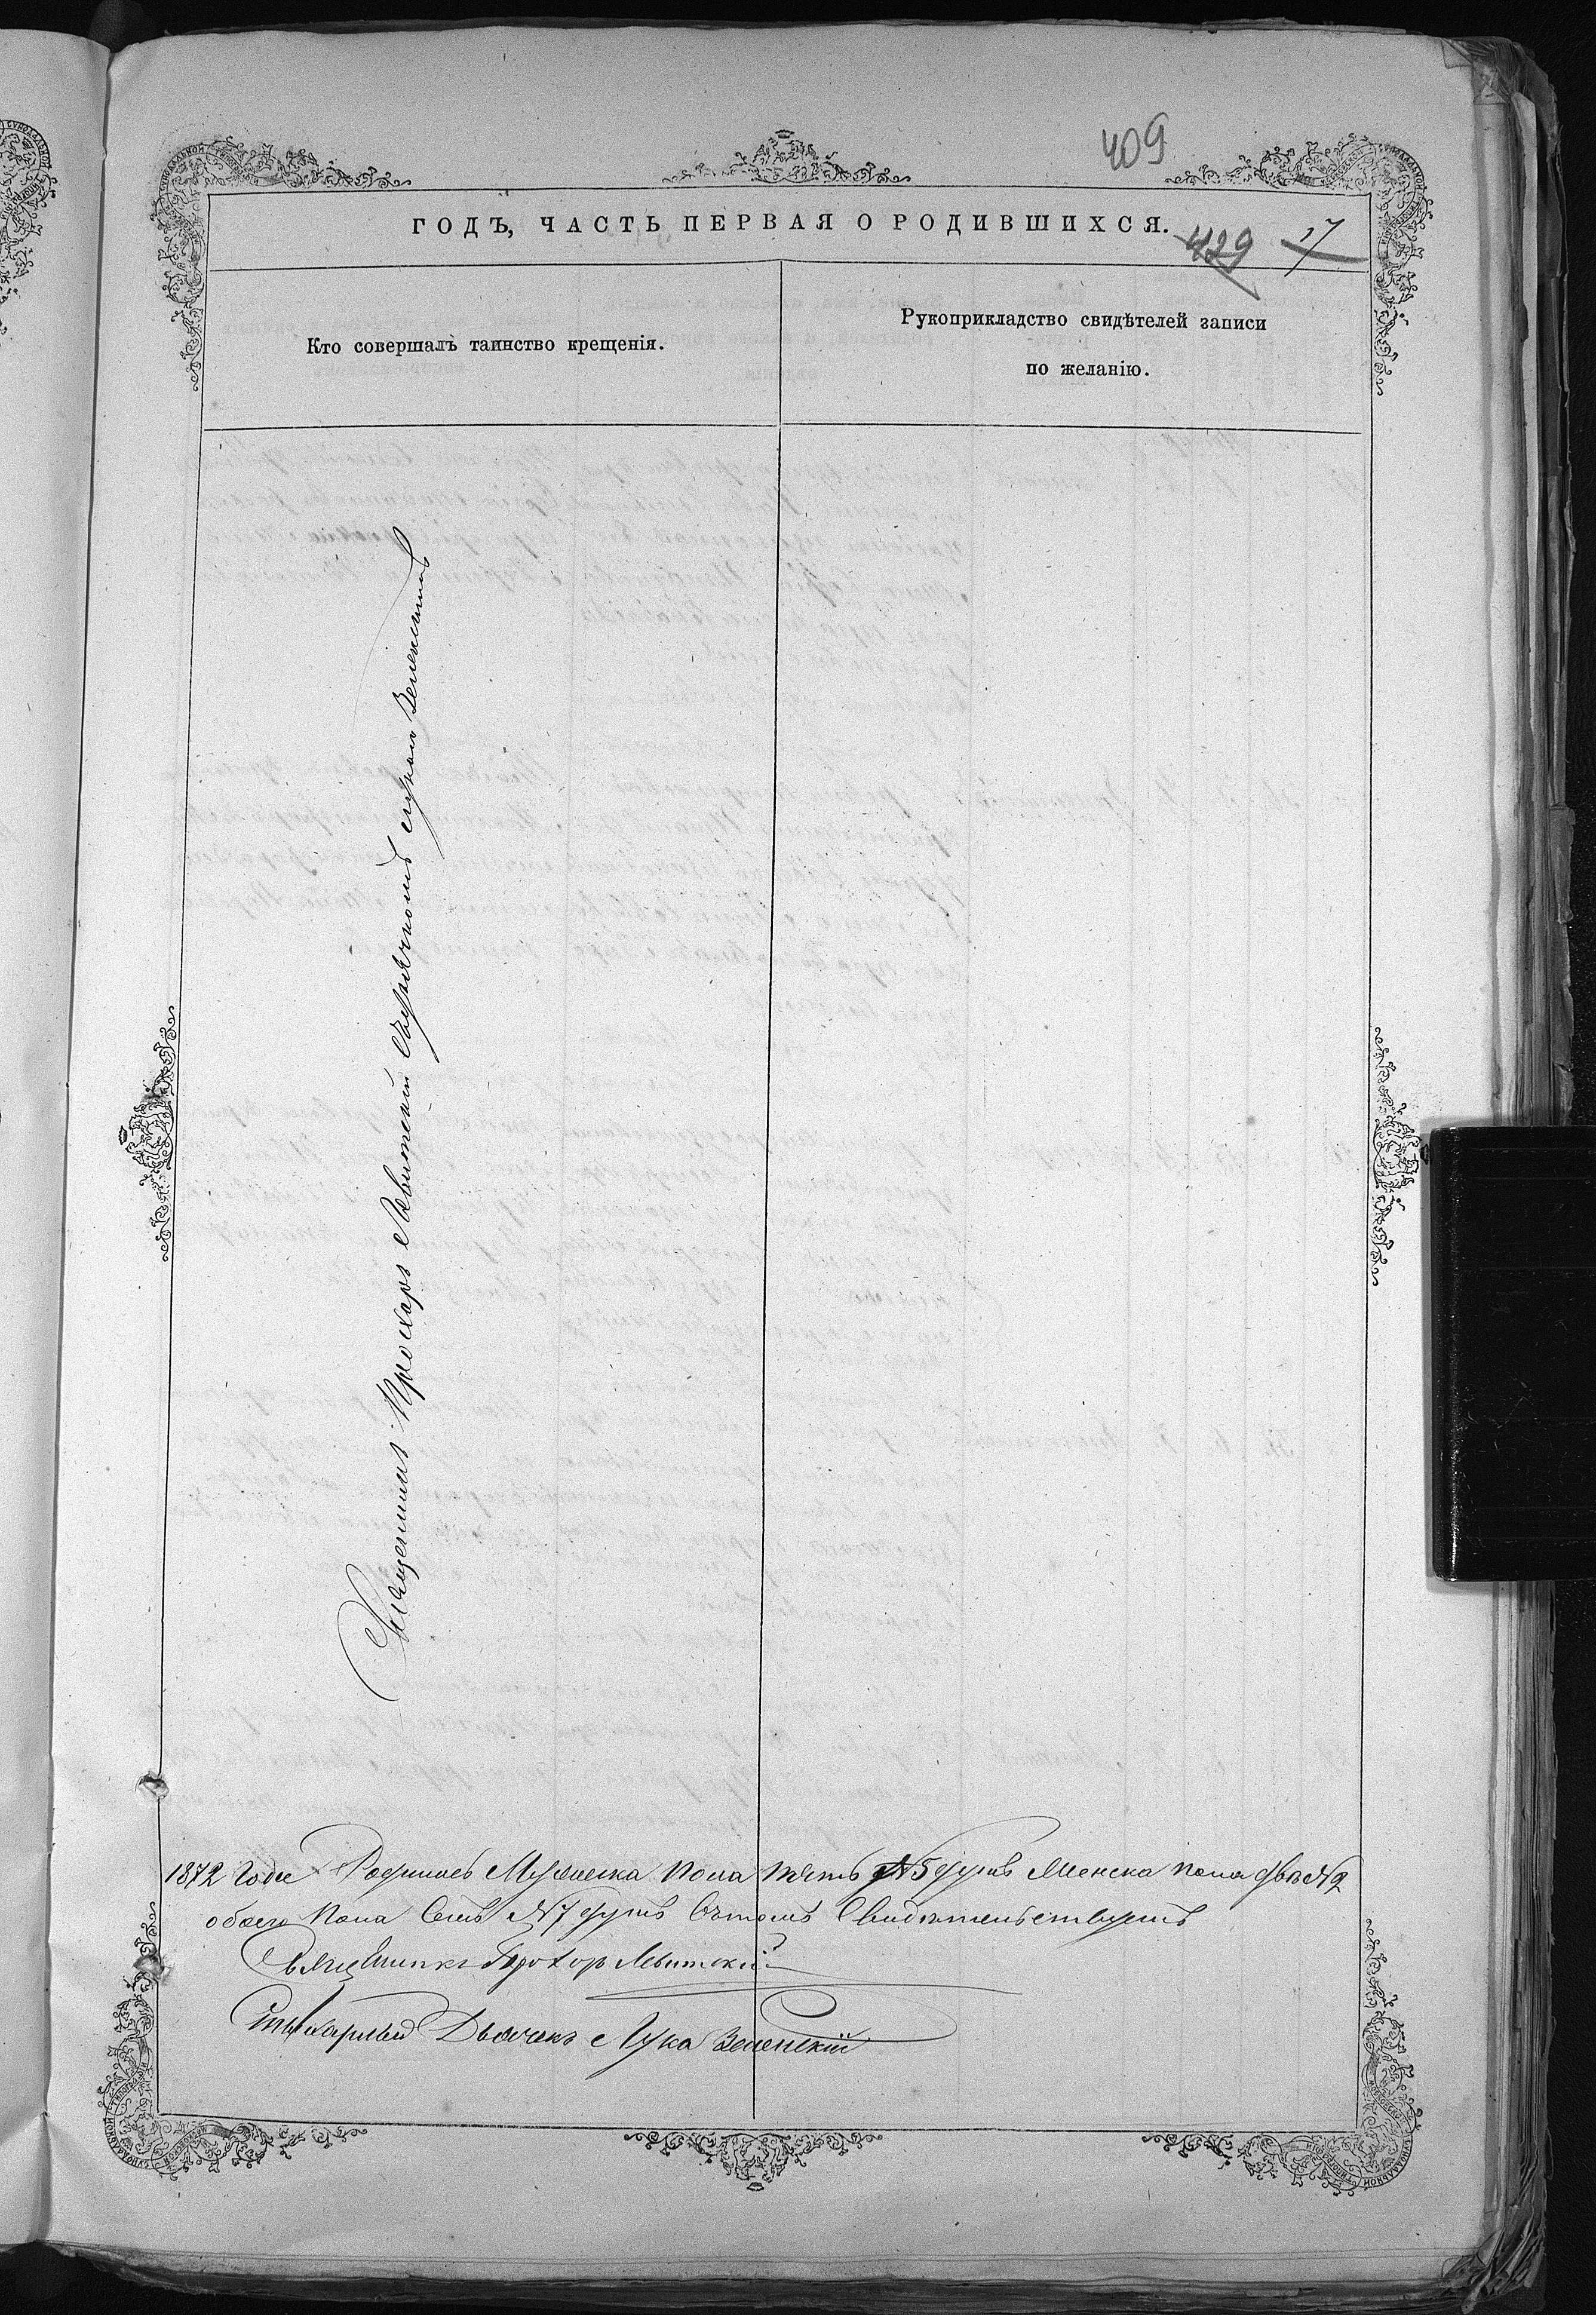 409
ГОДЪ, ЧАСТЬ ПЕРВАЯ О РОДИВШИХСЯ.
429 17
Кто совершалъ таинство крещенія.
Рукоприкладство свидѣтелей записи
по желанію.
Священникъ Прохаръ Левитскій съ дячкомъ Лукою Зеленскимъ
1872 Года Родилось Мужеска Пола пять №5 душъ Женска пола двѣ №2
обоего Пола Семь №7 душъ вътомъ Свидѣтельствуемъ
Священникъ Прохор Левитскій
Стихарный Дьячекъ Лука Зеленскій